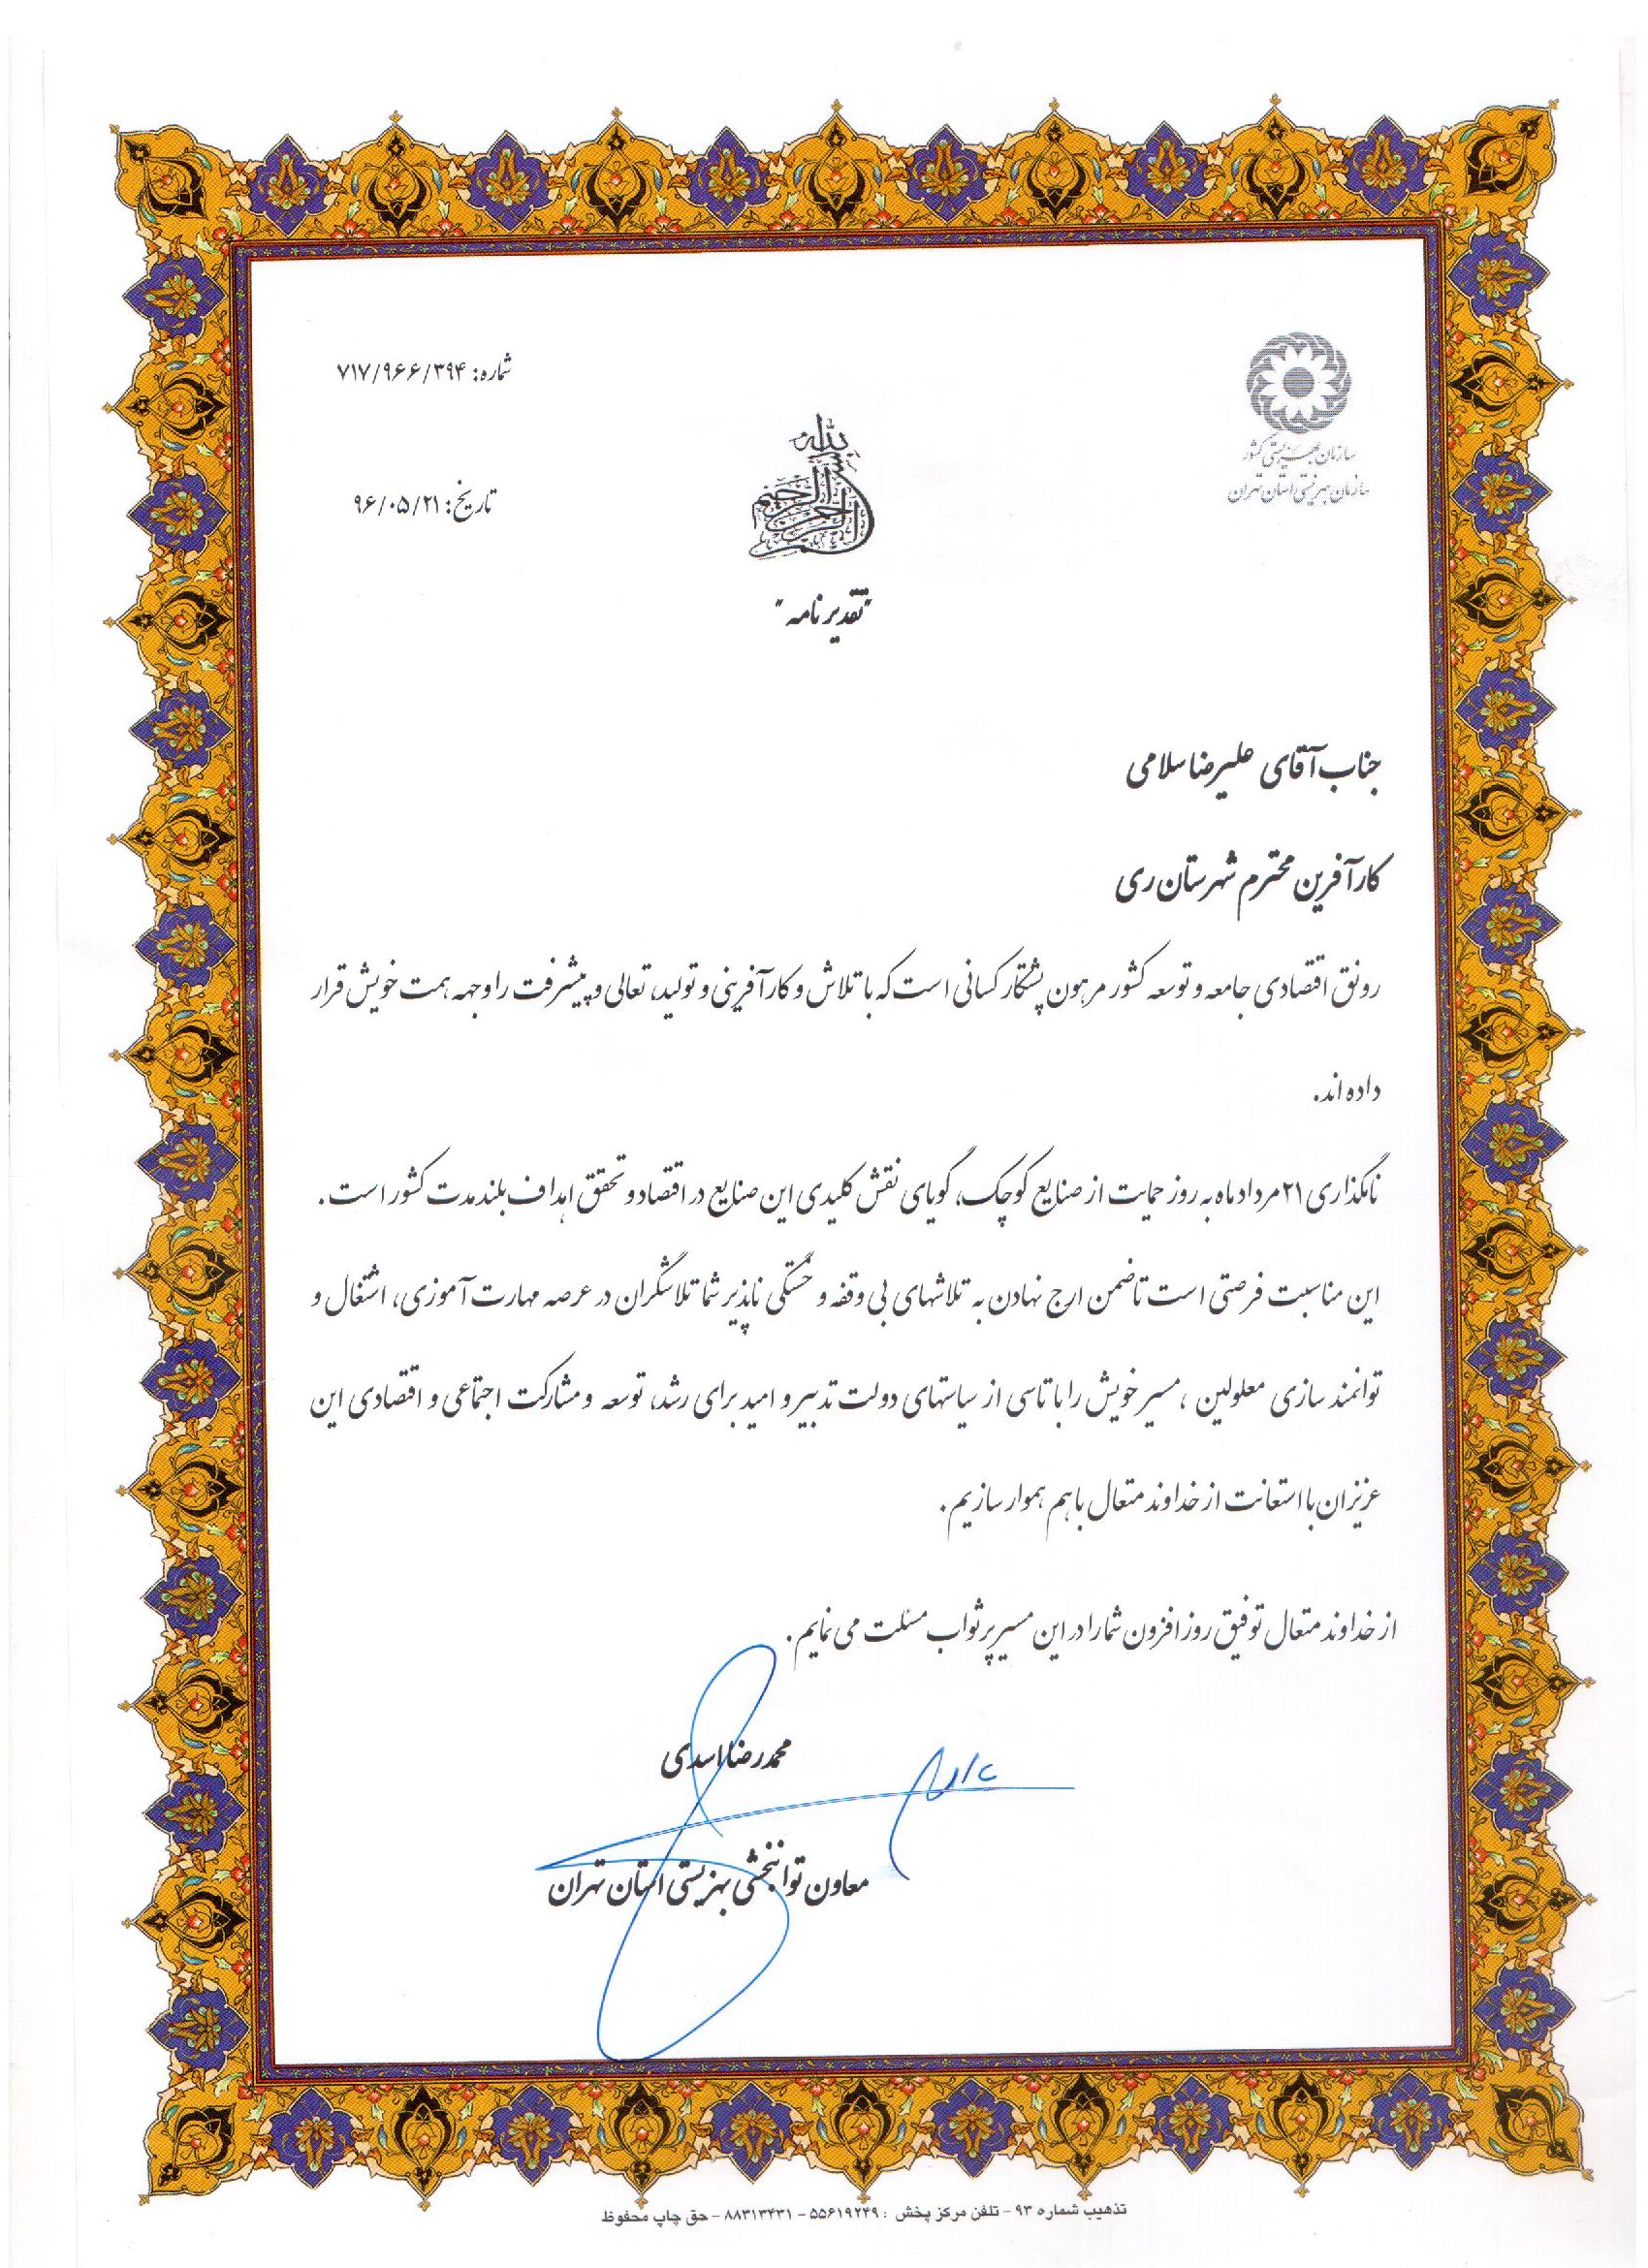 سازمان بهزیستی کشور
سازمان بهزیستی استان تهران
شماره: ۷۱۷/۹۶۶/۳۹۴
تاریخ: ۹۶/۰۵/۲۱
بسم الله الرحمن الرحیم
"تقدیرنامه"
جناب آقای علیرضا سلامی
کارآفرین محترم شهرستان ری
رونق اقتصادی جامعه و توسعه کشور مرهون پشتکار کسانی است که با تلاش و کارآفرینی و تولید، تعالی و پیشرفت را وجهه همت خویش قرار
داده اند.
نامگذاری ۲۱ مرداد ماه به روز حمایت از صنایع کوچک، گویای نقش کلیدی این صنایع در اقتصاد و تحقق اهداف بلند مدت کشور است.
این مناسبت فرصتی است تا ضمن ارج نهادن به تلاشهای بی وقفه و خستگی ناپذیر شما تلاشگران در عرصه مهارت آموزی، اشتغال و
توانمند سازی معلولین ، مسیر خویش را با تاسی از سیاستهای دولت تدبیر و امید برای رشد، توسعه و مشارکت اجتماعی و اقتصادی این
عزیزان با استعانت از خداوند متعال با هم هموار سازیم.
از خداوند متعال توفیق روز افزون شما را در این مسیر پر ثواب مسئلت می نمایم.
محمدرضا اسدی
معاون توانبخشی بهزیستی استان تهران
تذهیب شماره ۹۳ - تلفن مرکز پخش : ۵۵۶۱۹۲۴۹ - ۸۸۳۱۳۴۳۱ - حق چاپ محفوظ